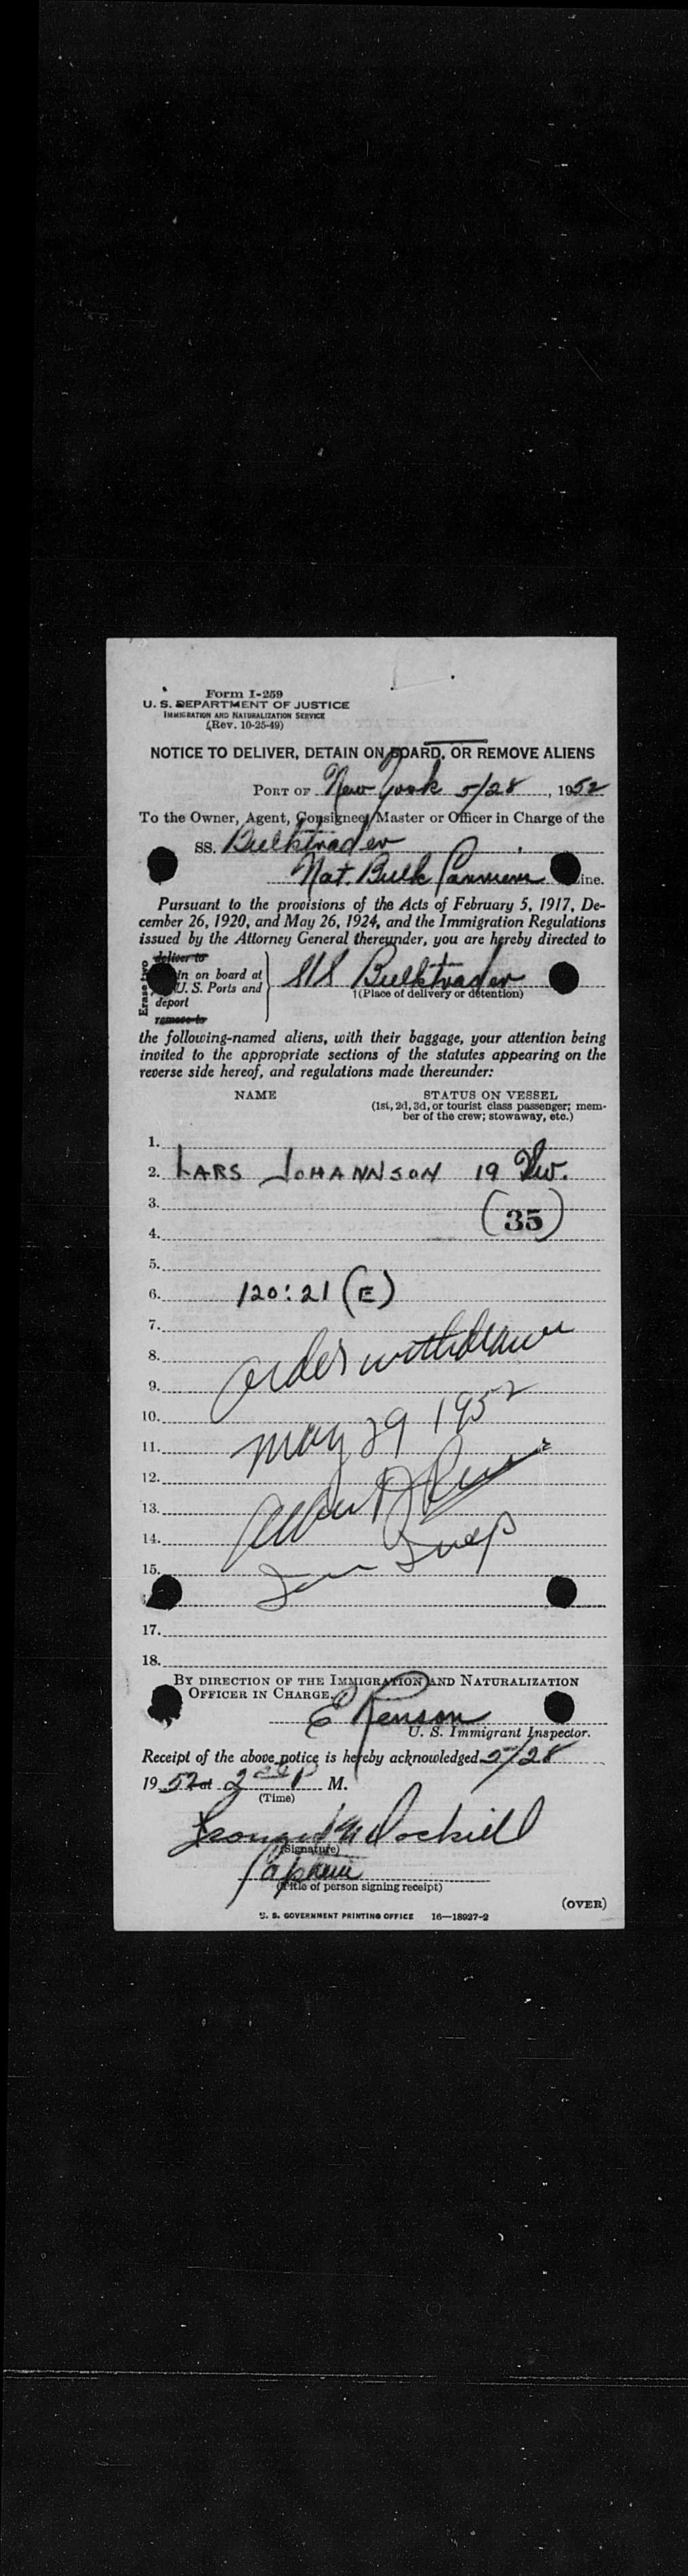 Form I-259
U. S. DEPARTMENT OF JUSTICE
IMMIGRATION AND NATURALIZATION SERVICE
(Rev. 10-25-49)
NOTICE TO DELIVER, DETAIN ON BOARD, OR REMOVE ALIENS
PORT OF New York 5/28, 1952
To the Owner, Agent, Consignee, Master or Officer in Charge of the
SS. Bulktrader
Nat. Bulk Carriers ine.
Pursuant to the provisions of the Acts of February 5, 1917, De-
cember 26, 1920, and May 26, 1924, and the Immigration Regulations
issued by the Attorney General thereunder, you are hereby directed to
Erase two
deliver to
in on board at
U. S. Ports and
deport
remove to
S/S Bulktrader
(Place of delivery or detention)
the following-named aliens, with their baggage, your attention being
invited to the appropriate sections of the statutes appearing on the
reverse side hereof, and regulations made thereunder:
NAME STATUS ON VESSEL
(1st, 2d, 3d, or tourist class passenger; mem-
ber of the crew; stowaway, etc.)
1.
2. LARS JOHANNSON 19
3. (35)
4.
5.
6. 120:21 (E)
7.
8. order withdrawn
9.
10.
11. May 29 1952
12.
13.
14.
15.
17.
18.
BY DIRECTION OF THE IMMIGRATION AND NATURALIZATION
OFFICER IN CHARGE.
E Renson
U. S. Immigrant Inspector.
Receipt of the above notice is hereby acknowledged 5/28
1952 at 2 P M.
(Time)
(Signature)
Captain
(Title of person signing receipt)
(OVER)
U. S. GOVERNMENT PRINTING OFFICE 16—18927-2